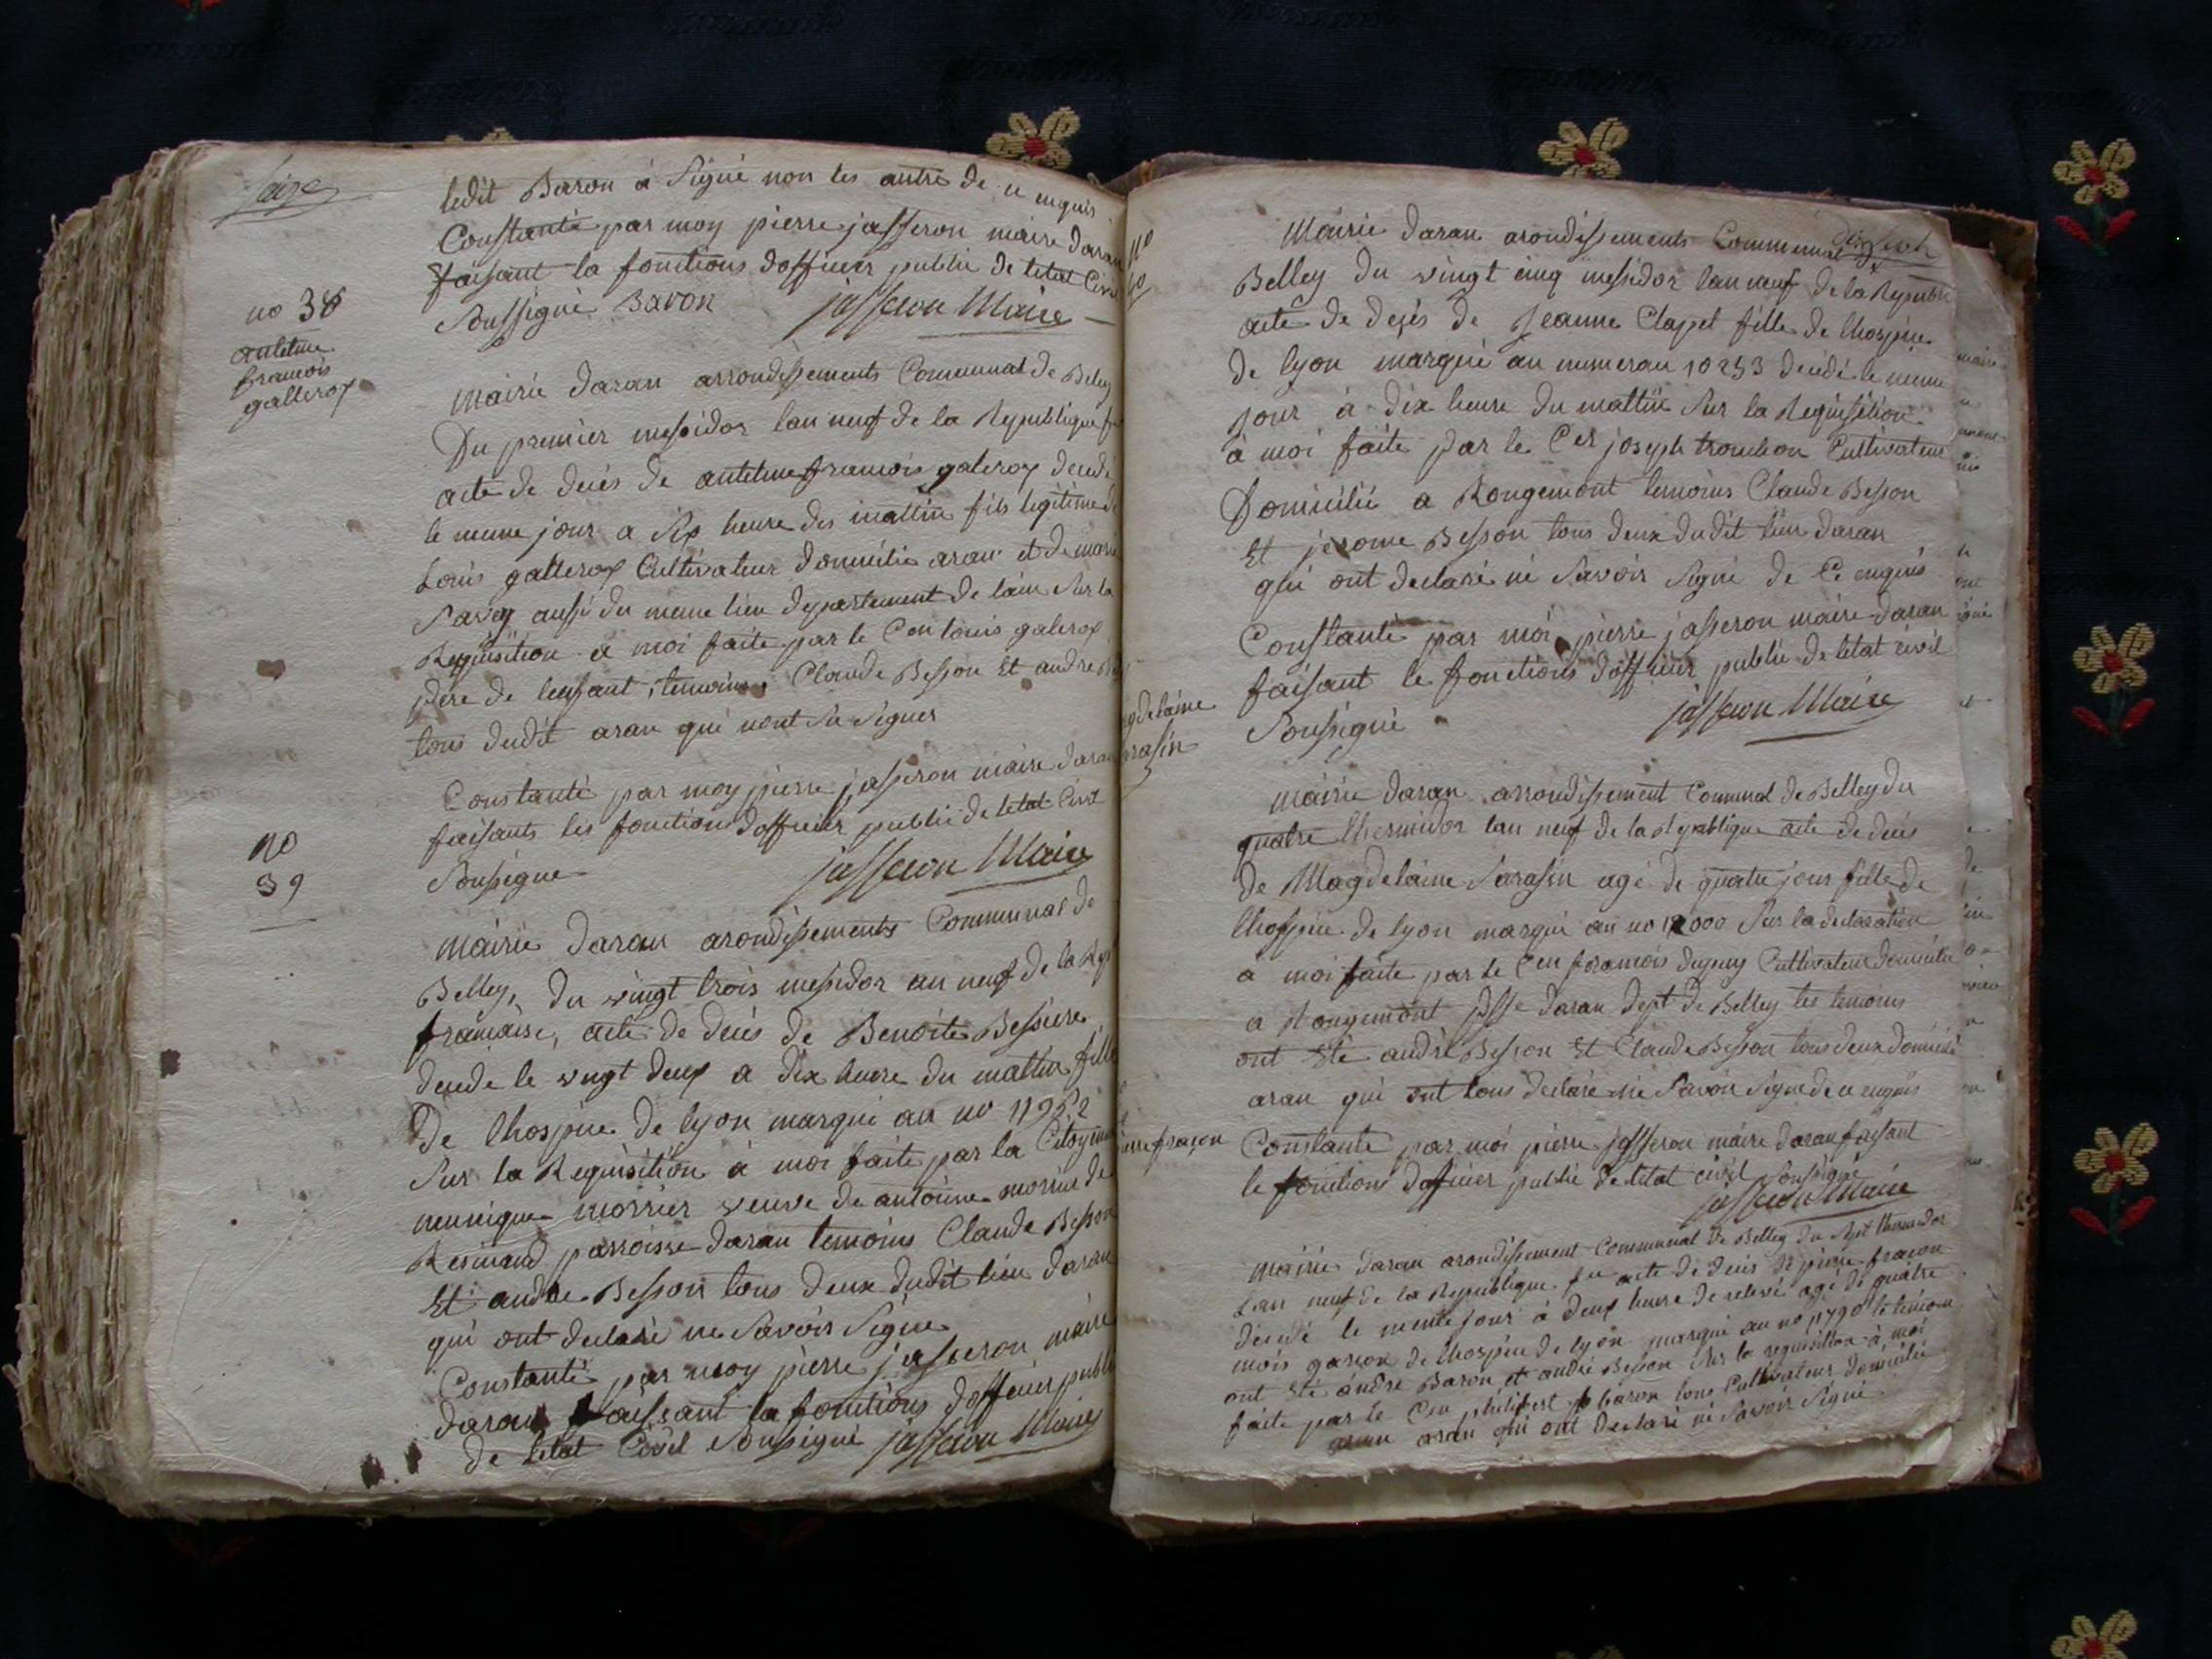 ledit Baron à Signé non les autre de ce enquis
Constanté par moy pierre jasseron maire daran
faisant la fonctions dofficier public de letat Civil
Soussigné Baron jasseron Maire
no 38
antelme
francois
galleroy
mairie daran arrondissements Communal de Belley
Du premier messidor lan neuf de la Republique
acte de decés de antelme francois galeroy decedé
le meme jour a Six heure des mattin fils legitime de
Louis galleroy Cultivateur domicilié aran et de marie
Savey aussi du meme lieu departement de lain Sur la
Requisition a moi faite par le Cen louis galeroy
pere de lenfant, temoins, Claude Besson Et andre
tous dudit aran qui nont Su Signer
Constanté par moy pierre jasseron maire daran
faisants les fonctions dofficier public de letat Civil
Soussigné jasseron Maire
no
39
mairie daran arondissements Communal de
Belley, du vingt trois messidor an neuf de la
francaise, acte de decés de Benoite Bessiere
decedé le vingt deux a dix heure du mattin fille
De lhospice de lyon marqué au no
Sur la Requisition à moi faite par la
morrier veuve de antoine morrier de
Resinand parroisse daran temoins Claude Besson
Et andre Besson tous deux dudit lieu daran
qui ont declaré ne Savoir Signe
Constanté par moy pierre jasseron maire
daran faissant la fonctions dofficier public
de letat Civil Soussigné jasseron Maire
no
40
Mairie daran arondissements Communal de
Belley du vingt cinq messidor lan neuf de la Republi
acte de deçés de Jeanne Clapet fille de lhospice
de lyon marqué au numerau 10253 decedé le meme
jour à dix heure du mattin Sur la Requisition
à moi faite par le Cen joseph Cultivateur
Domicilié a Rongemont temoins Claude Besson
Et jerome Besson tous deux dudit lieu daran
qui ont declaré ne Savoir Signe de Ce enquis
Constanté par moi pierre jasseron maire daran
faisant le fonctions dofficier public de letat civil
Soussigné jasseron Maire
gdelaine
rasin
mairie daran arrondissement Communal de Belley du
quatre thermidor lan neuf de la Republique acte de decés
de Magdelaine Sarasin agé de quatre jour fille de
lhospice de lyon marqué au no 12000 Sur la declaration
à moi faite par le Cen francois dupuy Cultivateur domicilié
a Rongemont psse daran dept de Belley les temoins
ont Eté andré Besson Et Claude Besson tous deux domicilié
aran qui ont tous declaré ne Savoir Signe de ce enquis
Constanté par moi pierre jasseron maire daran faisant
le fonctions dofficier public de letat civil Soussigné
jasseron Maire
rre fraçon
mairie daran arondissement Communal de Belley du Sept thermidor
Lan neuf de la Republique fre acte de decés de pierre fracon
decedé le meme jour à deux heure de relevé agé de quatre
mois garcon de lhospice de lyon marqué au no 11790 le temoin
ont Eté andre Baron et andré Besson Sur la requisition à moi
faite par le Cen philibert baron tous Cultivateur domicilié
aran qui ont declaré ne Savoir Signé